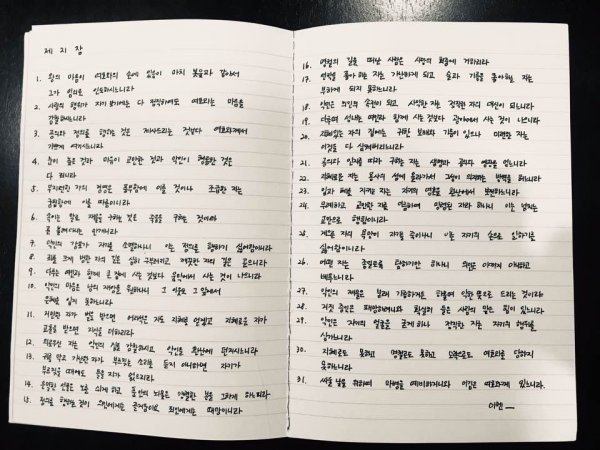 제 21 장
1. 왕의 마음이 여호와의 손에 있음이 마치 봇물과 같아서
그가 임의로 인도하시느니라
2. 사람의 행위가 자기 보기에는 다 정직하여도 여호와는 마음을
감찰하시느니라
3. 공의와 정의를 행하는 것은 제사드리는 것보다 여호와께서
기쁘게 여기시느니라
4. 눈이 높은 것과 마음이 교만한 것과 악인이 형통한 것은
다 죄니라
5. 부지런한 자의 경영은 풍부함에 이를 것이나 조급한 자는
궁핍함에 이를 따름이니라
6. 속이는 말로 재물을 구하는 것은 죽음을 구하는 것이라
곧 불려다니는 안개니라
7. 악인의 강포가 자기를 소멸하나니 이는 정의를 행하기 싫어함이니라
8. 죄를 크게 범한 자의 길은 심히 구부러지고 깨끗한 자의 길은 곧으니라
9. 다투는 여인과 함께 큰 집에서 사는 것보다 움막에서 사는 것이 나으니라
10. 악인의 마음은 남의 재앙을 원하나니 그 이웃도 그 앞에서
은혜를 입지 못하느니라
11. 거만한 자가 벌을 받으면 어리석은 자도 지혜를 얻겠고 지혜로운 자가
교훈을 받으면 지식이 더하리라
12. 의로우신 자는 악인의 집을 감찰하시고 악인을 환난에 던지시느니라
13. 귀를 막고 가난한 자가 부르짖는 소리를 듣지 아니하면 자기가
부르짖을 때에도 들을 자가 없으리라
14. 은밀한 선물은 노를 쉬게 하고 품 안의 뇌물은 맹렬한 분을 그치게 하느니라
15. 정의를 행하는 것이 의인에게는 즐거움이요 죄인에게는 패망이니라
16. 명철의 길을 떠난 사람은 사망의 회중에 거하리라
17. 연락을 좋아 하는 자는 가난하게 되고 술과 기름을 좋아하는 자는
부하게 되지 못하느니라
18. 악인은 의인의 속전이 되고 사악한 자는 정직한 자의 대신이 되느니라
19. 다투며 성내는 여인과 함께 사는 것보다 광야에서 사는 것이 나으니라
20. 지혜있는 자의 집에는 귀한 보배와 기름이 있으나 미련한 자는
이것을 다 삼켜버리느니라
21. 공의와 인자를 따라 구하는 자는 생명과 공의와 영광을 얻느니라
22. 지혜로운 자는 용사의 성에 올라가서 그 성이 의지하는 방벽을 허느니라
23. 입과 혀를 지키는 자는 자기의 영혼을 환난에서 보전하느니라
24. 무례하고 교만한 자를 이름하여 망령된 자라 하나니 이는 넘치는
교만으로 행함이니라
25. 게으른 자의 욕망이 자기를 죽이나니 이는 자기의 손으로 일하기를
싫어함이니라
26. 어떤 자는 종일토록 탐하기만 하나 의인은 아끼지 아니하고
베푸느니라
27. 악인의 제물은 본래 가증하거든 하물며 악한 뜻으로 드리는 것이랴
28. 거짓 증인은 패망하려니와 확실히 들은 사람의 말은 힘이 있느니라
29. 악인은 자기의 얼굴을 굳게 하나 정직한 자는 자기의 행위를
삼가느니라
30. 지혜로도 못하고 명철로도 못하고 모략으로도 여호와를 당하지
못하느니라
31. 싸울 날을 위하여 마병을 예비하거니와 이김은 여호와께 있느니라
아멘